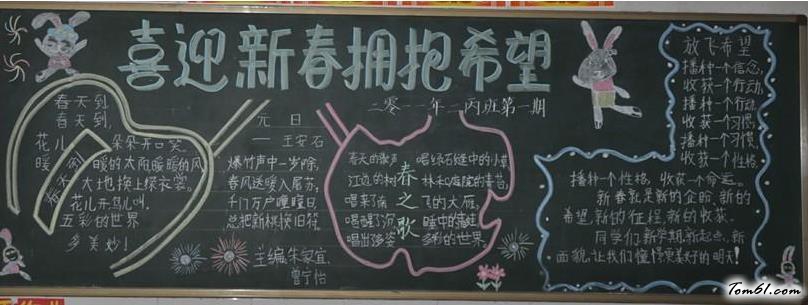 喜迎新春拥抱希望
二零一一年二丙班第一期
春天到,
春天到,
花儿朵朵开口笑。
暖暖的太阳暖暖的风
大地换上绿衣裳。
花儿开鸟儿叫
五彩的世界
多美妙!
元日
王安石
爆竹声中一岁除,
春风送暖入屠苏,
千门万户曈曈日,
总把新桃换旧符。
主编:朱家宜
曾宁怡
春之歌
春天的歌声
江边的树
唱来了南
唱醒了沉
唱出了多姿
唱绿石缝中的小草
林和庭院的青苔,
飞的大雁,
睡中的青蛙
多彩的世界。
放飞希望
播种一个信念,
收获一个行动,
播种一个行动,
收获一个习惯,
播种一个习惯,
收获一个性格,
播种一个性格,收获一个命运。
新春就是新的企盼,新的
希望,新的征程,新的收获。
同学们,新学期,新起点,新
面貌,让我们憧憬更美好的明天!
Tom61.com